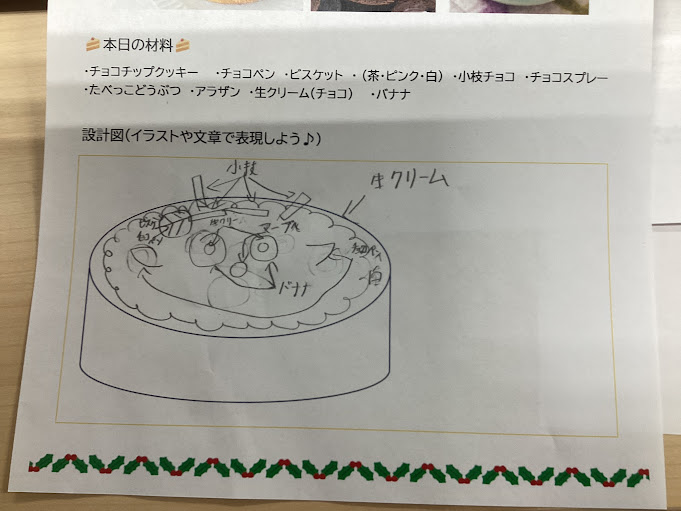 本日の材料
・チョコチップクッキー ・チョコペン ・ビスケット ・（茶・ピンク・白） ・小枝チョコ ・チョコスプレー
・たべっこどうぶつ ・アラザン ・生クリーム（チョコ） ・バナナ
設計図(イラストや文章で表現しよう♪)
小枝
生クリーム
生クリーム
バナナ
白